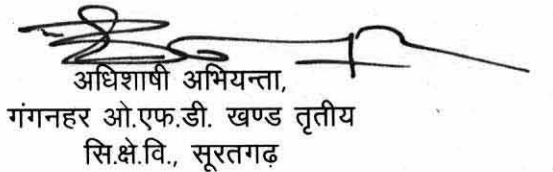 अधिशाषी अभियन्ता,
गंगनहर ओ.एफ.डी. खण्ड तृतीय
सि.क्षे.वि., सूरतगढ़